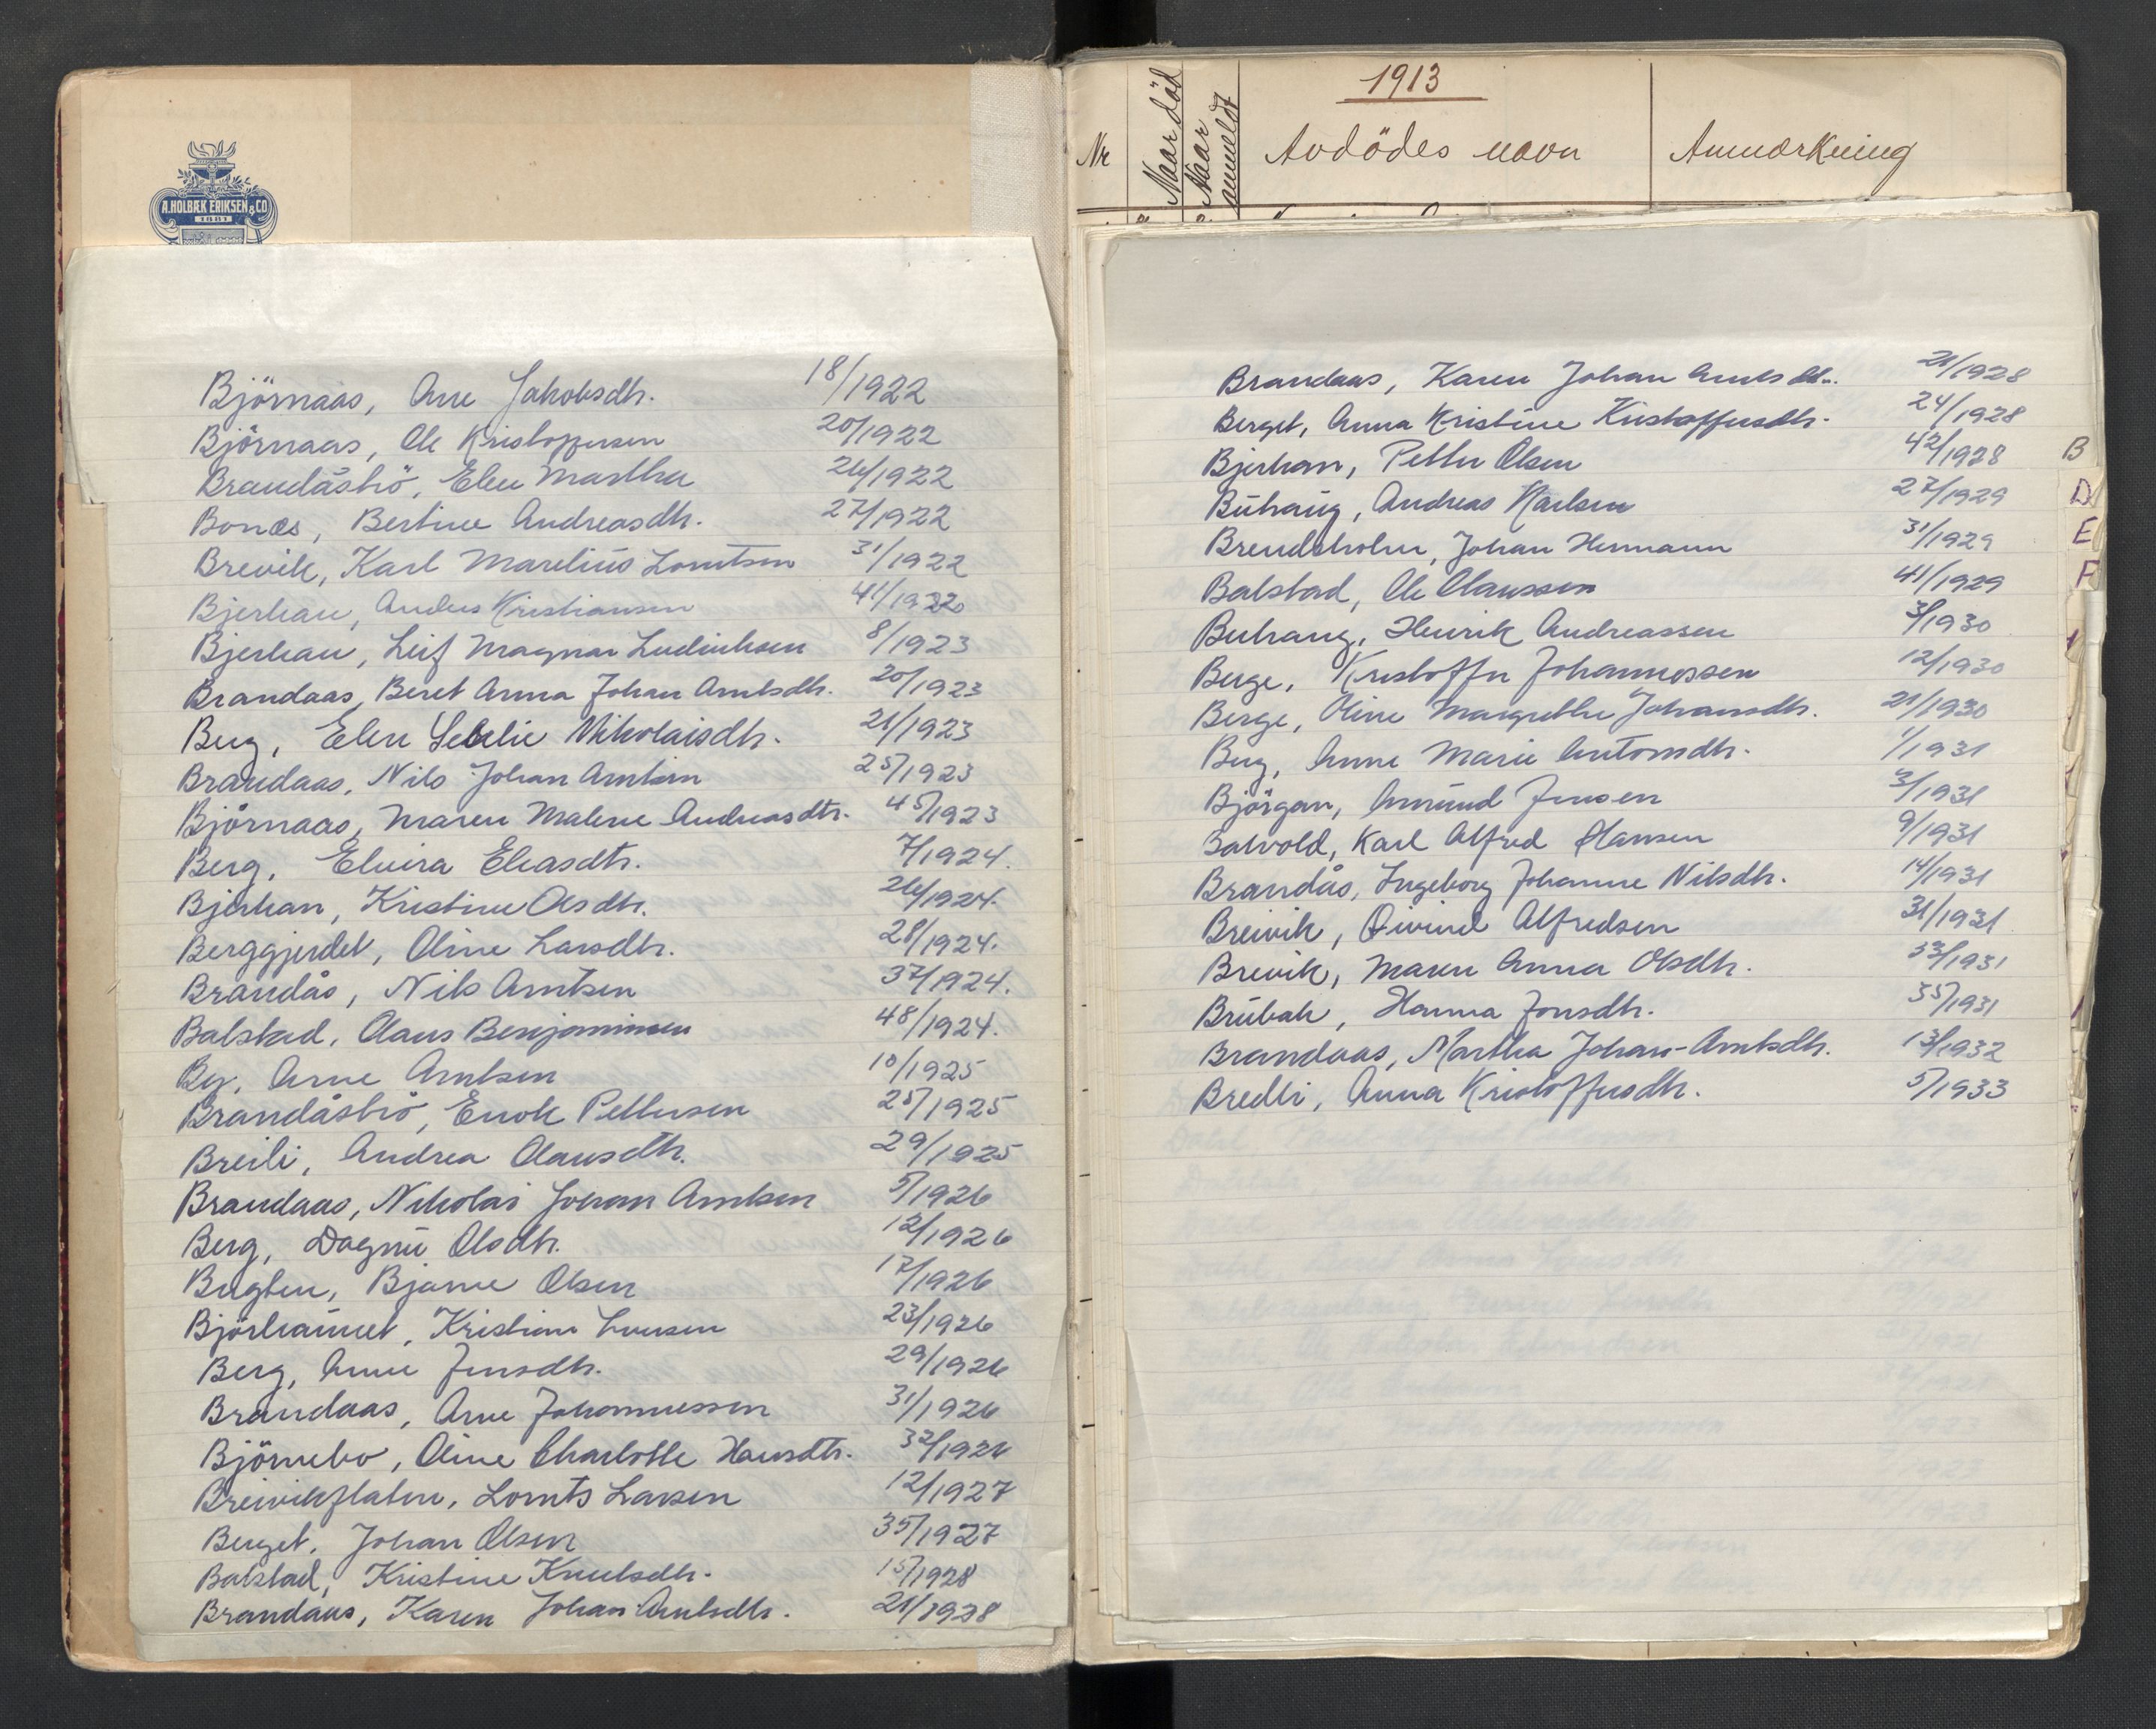 A. HOLBÆK ERIKSEN & CO
1881
Björnaas, Ane Jakobsdtr. 18/1922
Björnaas, Ole Kristoffersen 20/1922
Brandåsbö, Elen Martha 26/1922
Bonæs, Bertine Andreasdtr. 27/1922
Brevik, Karl Marelius Lorntsen 31/1922
Bjerkan, Anders Kristiansen 41/1922
Bjerkan, Leif Magnar Ludviksen 8/1923
Brandaas, Beret Anna Johan Arntsdtr. 20/1923
Berg, Elen Nikolaisdtr. 21/1923
Brandaas, Nils Johan Arntsen 25/1923
Björnaas, Maren Malene Andreasdtr. 45/1923
Berg, Elvira Eliasdtr. 7/1924.
Bjerkan, Kristine Olsdtr. 26/1924.
Berggjerdet, Oline Larsdtr. 28/1924.
Brandås, Nils Arntsen 37/1924.
Balstad, Olaus Benjaminsen 48/1924.
By, Arne Arntsen 10/1925
Brandåsbö, Enok Pettersen 25/1925
Breili, Andrea Olausdtr. 29/1925
Brandaas, Nikolai Johan Arntsen 5/1926
Berg, Dagny Olsdtr. 12/1926
Bugten, Bjarne Olsen 17/1926
Kristian 23/1926
Berg, Anne Jensdtr. 29/1926
Brandaas, Arne Johannessen 31/1926
Björnebo, Oline Charlotte Hansdtr. 32/1926
Breivikflaten, Lornts Larsen 12/1927
Berget, Johan Olsen 35/1927
Balstad, Kristine Knutsdtr. 15/1928
Brandaas, Karen Johan Arntsdtr. 21/1928
1913
Nr Naar död Naar anmeldt Avdödes navn Anmærkning
Brandaas, Karen Johan Arntsdtr. 21/1928
Berget, Anna Kristine Kristoffersdtr. 24/1928
Bjerkan, Petter Olsen 42/1928 B
Buhaug, Andreas Karlsen 27/1929 D
Brendsholm, Johan Hermann 31/1929 E
Balstad, Ole Olaussen 41/1929 F
Buhaug, Henrik Andreassen 3/1930
Berge, Kristoffer Johannessen 12/1930
Berge, Oline Margrethe Johansdtr. 21/1930
Berg, Anne Marie Antonsdtr. 1/1931
Björgan, Amund Jensen 3/1931
Balvold, Karl Alfred Hansen 9/1931
Brandås, Ingeborg Johanne Nilsdtr. 14/1931
Breivik, Øivind Alfredsen 31/1931
Brevik, Maren Anna Olsdtr. 33/1931
Brubak, Hanna Jonsdtr. 35/1931
Brandaas, Martha Johan-Arntsdtr. 13/1932
Bredli, Anna Kristoffersdtr. 5/1933